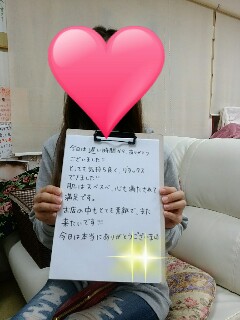 今日は遅い時間から、ありがとう
ございました!!
とっても気持ち良く、リラックス
できました!!
肌はスベスベ、心も満たされて
満足です。
お店の中もとても素敵で、また
来たいです!!
今日は本当にありがとうございました